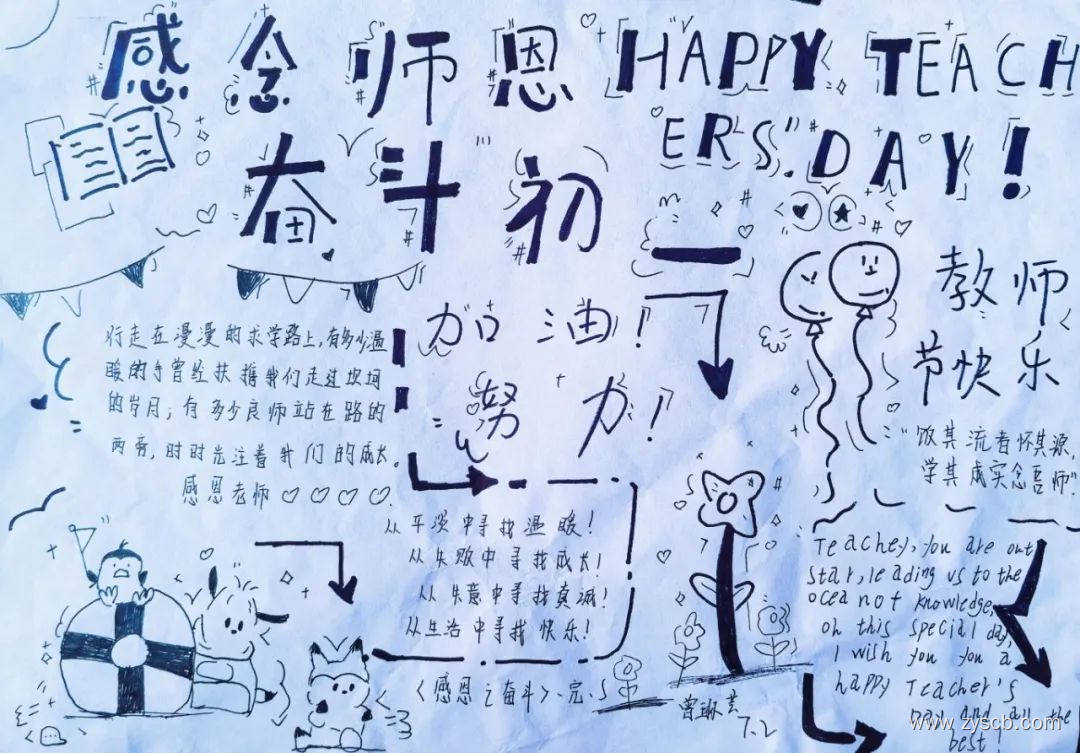 感念师恩 HAPPY TEACH
ERS" DAY!
奋斗初一
加油!
努力!
教师
节快乐
行走在漫漫的求学路上,有多少温
暖的手曾经扶携我们走过坎坷
的岁月;有多少良师站在路的
两旁,时时光注着我们的成长。
感恩老师♡♡♡♡.
从平淡中寻找温暖!
从失败中寻找成长!
从失意中寻找真诚!
从生活中寻找快乐!
《感恩之奋斗》·完·
曾琳芸
7.2
"饭其流者怀其源,
学其成实念吾师"
Teachey, you are out
star, leading us to the
ocea not knowledge,
on this special day,
I wish you you a
happy Teacher's
Day and all the
best!
www.zyscb.com